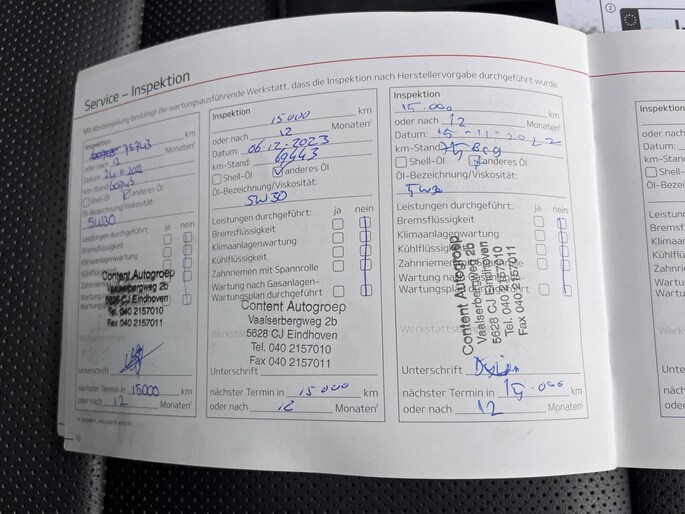 Service – Inspektion
Mit Abstempelung bestätigt der wartungsausführende Werkstatt, dass die Inspektion nach Herstellervorgabe durchgeführt wurde.
Inspektion
75743 km
oder nach 12 Monaten¹
Datum:
km-Stand:
Shell-Öl anderes Öl
Öl-Bezeichnung/Viskosität:
5W30
Leistungen durchgeführt: ja nein
Bremsflüssigkeit
Klimaanlagenwartung
Content Autogroep
Vaalserbergweg 2b
5628 CJ Eindhoven
Tel. 040 2157010
Fax 040 2157011
Unterschrift
nächster Termin in 15000 km
oder nach 12 Monaten¹
16
Inspektion
15000 km
oder nach 12 Monaten¹
Datum: 06-12-2023
km-Stand: 69443
Shell-Öl anderes Öl
Öl-Bezeichnung/Viskosität:
5W30
Leistungen durchgeführt: ja nein
Bremsflüssigkeit
Klimaanlagenwartung
Kühlflüssigkeit
Zahnriemen mit Spannrolle
Wartung nach Gasanlagen-
Wartungsplan durchgeführt
Content Autogroep
Vaalserbergweg 2b
5628 CJ Eindhoven
Tel. 040 2157010
Fax 040 2157011
Unterschrift
nächster Termin in 15000 km
oder nach 12 Monaten¹
Inspektion
15.000 km
oder nach 12 Monaten¹
Datum: 15-11-2022
km-Stand:
Shell-Öl anderes Öl
Öl-Bezeichnung/Viskosität:
Leistungen durchgeführt: ja nein
Bremsflüssigkeit
Klimaanlagenwartung
Kühlflüssigkeit
Zahnriemen
Wartung nach
Wartungsplan
Content Autogroep
Vaalserbergweg 2b
5628 CJ Eindhoven
Tel. 040 2157010
Fax 040 2157011
Unterschrift
nächster Termin in 15.000 km
oder nach 12 Monaten¹
Inspektion
oder nach
Datum:
km-Stand:
Shell-
Öl-Bezeichn
Leistungen
Bremsflüss
Klimaanla
Kühlflüss
Zahnrie
Wartu
Wartu
Werk
Unte
näch
ode